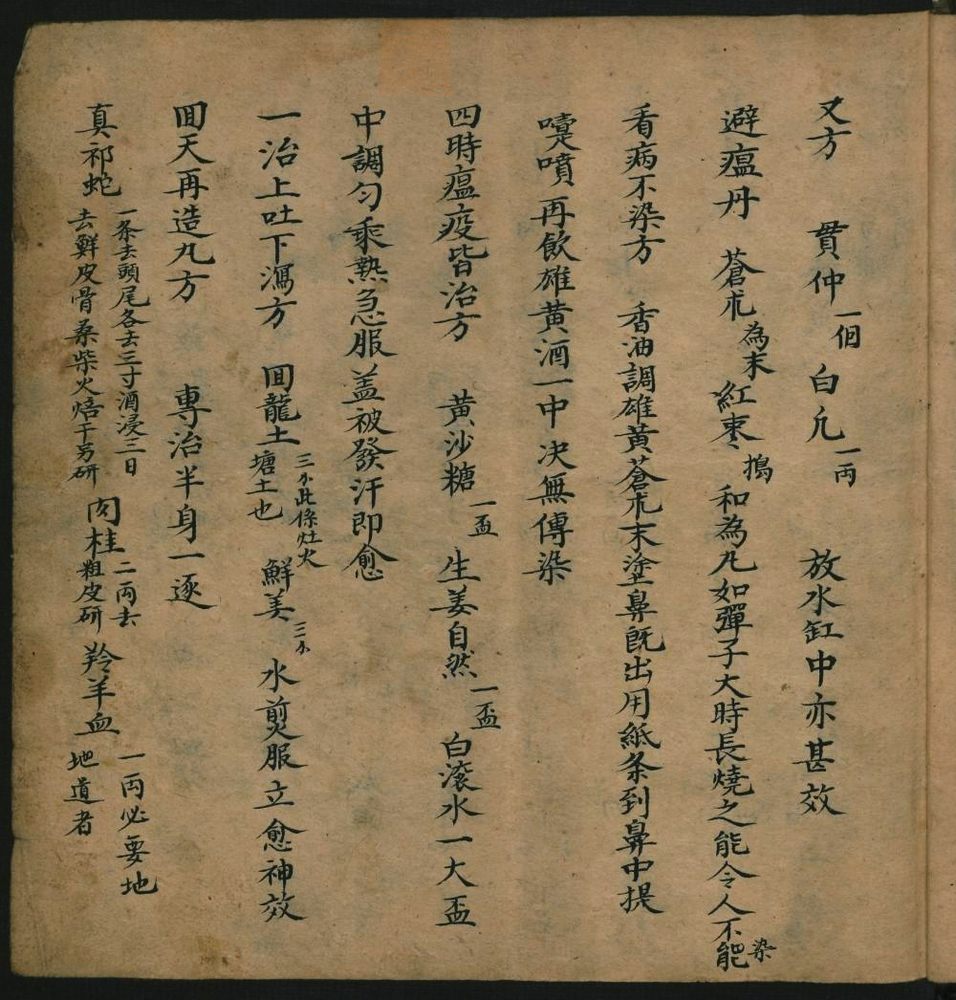 又方　貫仲一個白凡一両　放水缸中亦甚效
避瘟丹　蒼朮為末紅棗搗和為凡如彈子大時長燒之能令人不能染
看病不染方　香油調雄黃蒼朮末塗鼻既出用紙条到鼻中提
嚏噴再飲雄黃酒一中决無傳染
四時瘟疫皆治方　黃沙糖一盃　生姜自然一盃　白滚水一大盃
中調匀乘熱急服盖被發汗即愈
一治上吐下瀉方　囬龍土三个此係灶火塘土也　鮮美三个　水煎服立愈神效
囬天再造凡方　專治半身一逐
真祁蛇一条去頭尾各去三寸酒浸三日去鮮皮骨桑柴火焙干另研　肉桂二両去粗皮研　羚羊血一両必要地地道者